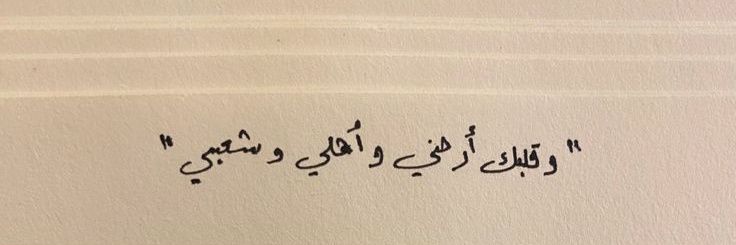 "وقلبك أرضي وأهلي وشعبي"